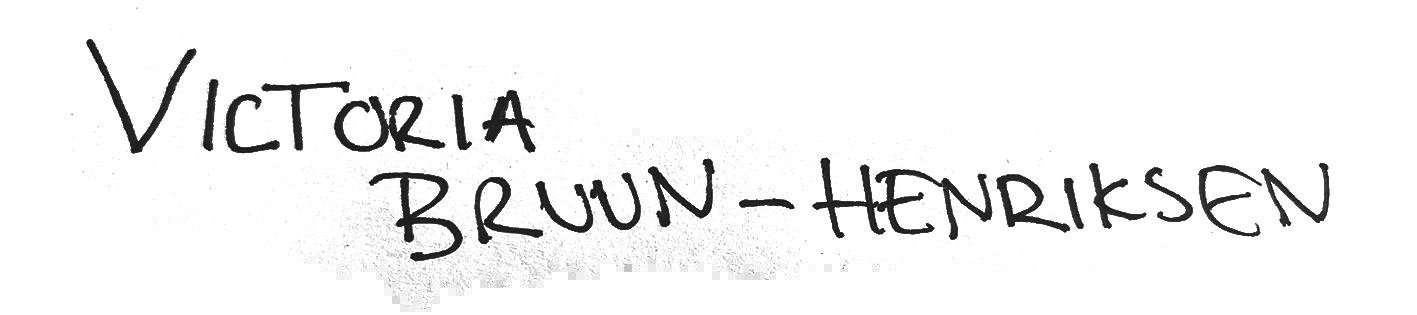 VICTORIA
BRUUN-HENRIKSEN